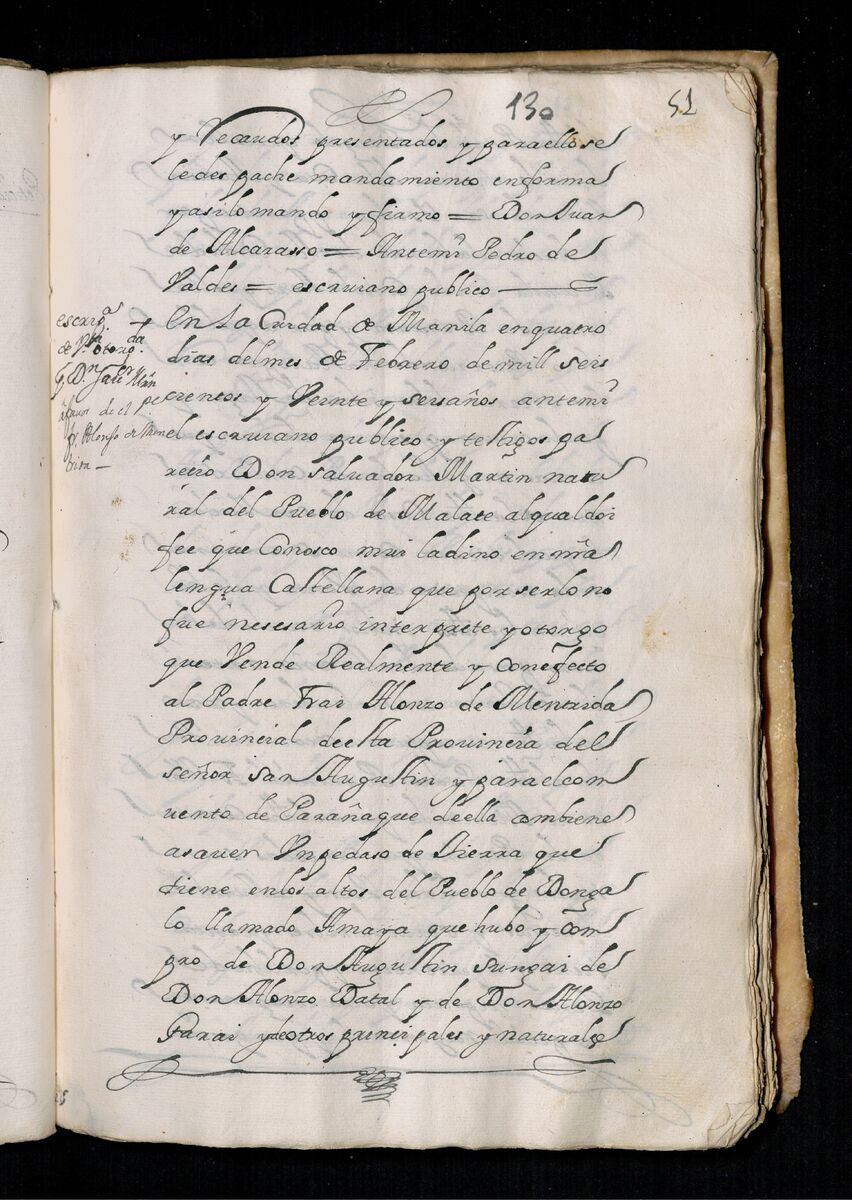 130
51
y Recaudos presentados y paraello se
ledes pache mandamiento enforma
y asi lo mando y firmo = Don Juan
de Alcarasso = Antemi Pedro de
Valdes = escruiano publico
escrip.as
de V.ta otorg.da
p.r D.n Salu.or Mrn
á fauor de el P.e
fr. Alonso de Men
trida —
En La Ciudad de Manila enquatro
dias delmes de Febrero de mill seis
cientos y Veinte y seis años antemi
el escruiano publico y testigos pa
recio Don saluador Martin natu
ral del Pueblo de Malate alqual doi
fee que Conosco mui ladino en nrâ
lengua Castellana que por serlo no
fue nesesario interprete y otorgo
que Vende Realmente y con efecto
al Padre Frai Alonzo de Mentrida
Provincial de esta Provincia del
señor san Augustin y para el com
uento de Parañaque de ella combiene
asauer Vn pedaso de tierra que
tiene enlos altos del Pueblo de Donga
lo llamado Amaya que hubo y com
pro de Don Augustin sungai de
Don Alonzo Datal y de Don Alonzo
Garai y de otros principales y naturales